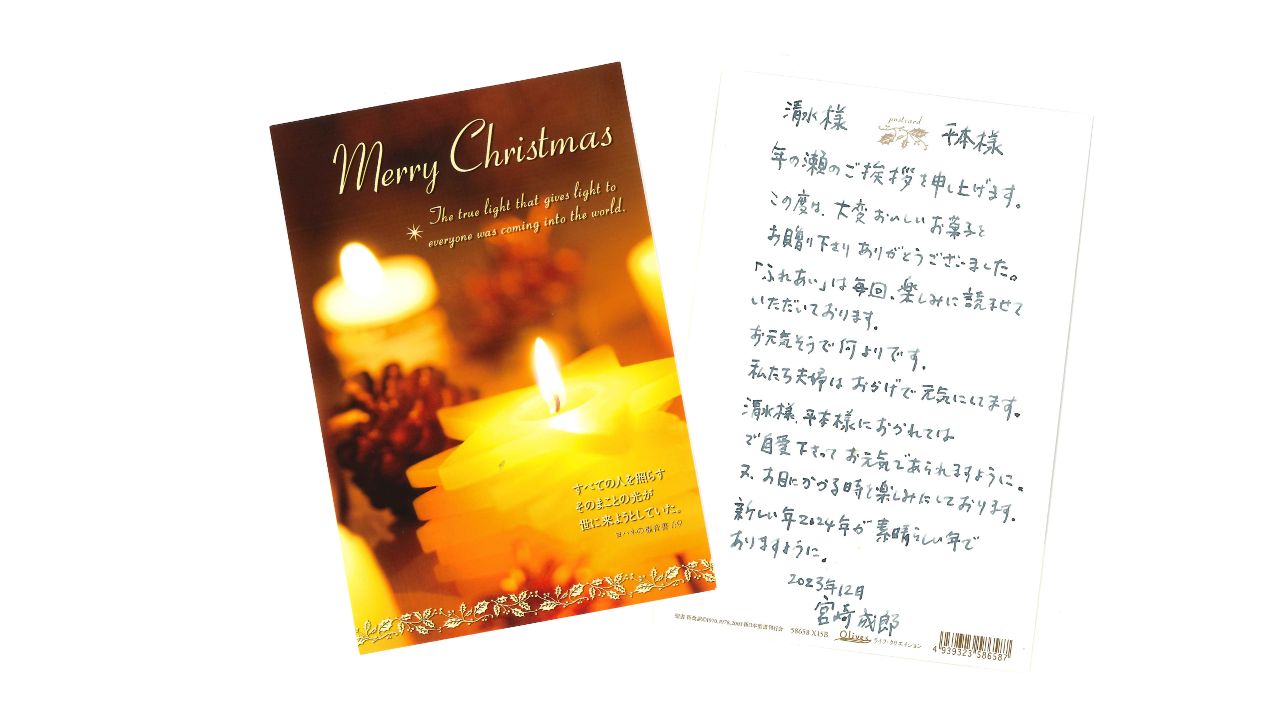 Merry Christmas
The true light that gives light to
everyone was coming into the world.
すべての人を照らす
そのまことの光が
世に来ようとしていた。
ヨハネの福音書 1:9
清水様
postcard
平本様
年の瀬のご挨拶を申し上げます。
この度は、大変おいしいお菓子を
お贈り下さりありがとうございました。
「ふれあい」は毎回、楽しみに読ませて
いただいております。
お元気そうで何よりです。
私たち夫婦はおかげで元気にしてます。
清水様、平本様におかれては
ご自愛下さってお元気であられますように。
又、お目にかかる時を楽しみにしております。
新しい年2024年が素晴らしい年で
ありますように。
2023年12月
宮崎成郎
聖書 新改訳©1970,1978,2003 新日本聖書刊行会
58658 X15B
Olives
ライフ・クリエイション
4 939323 586587